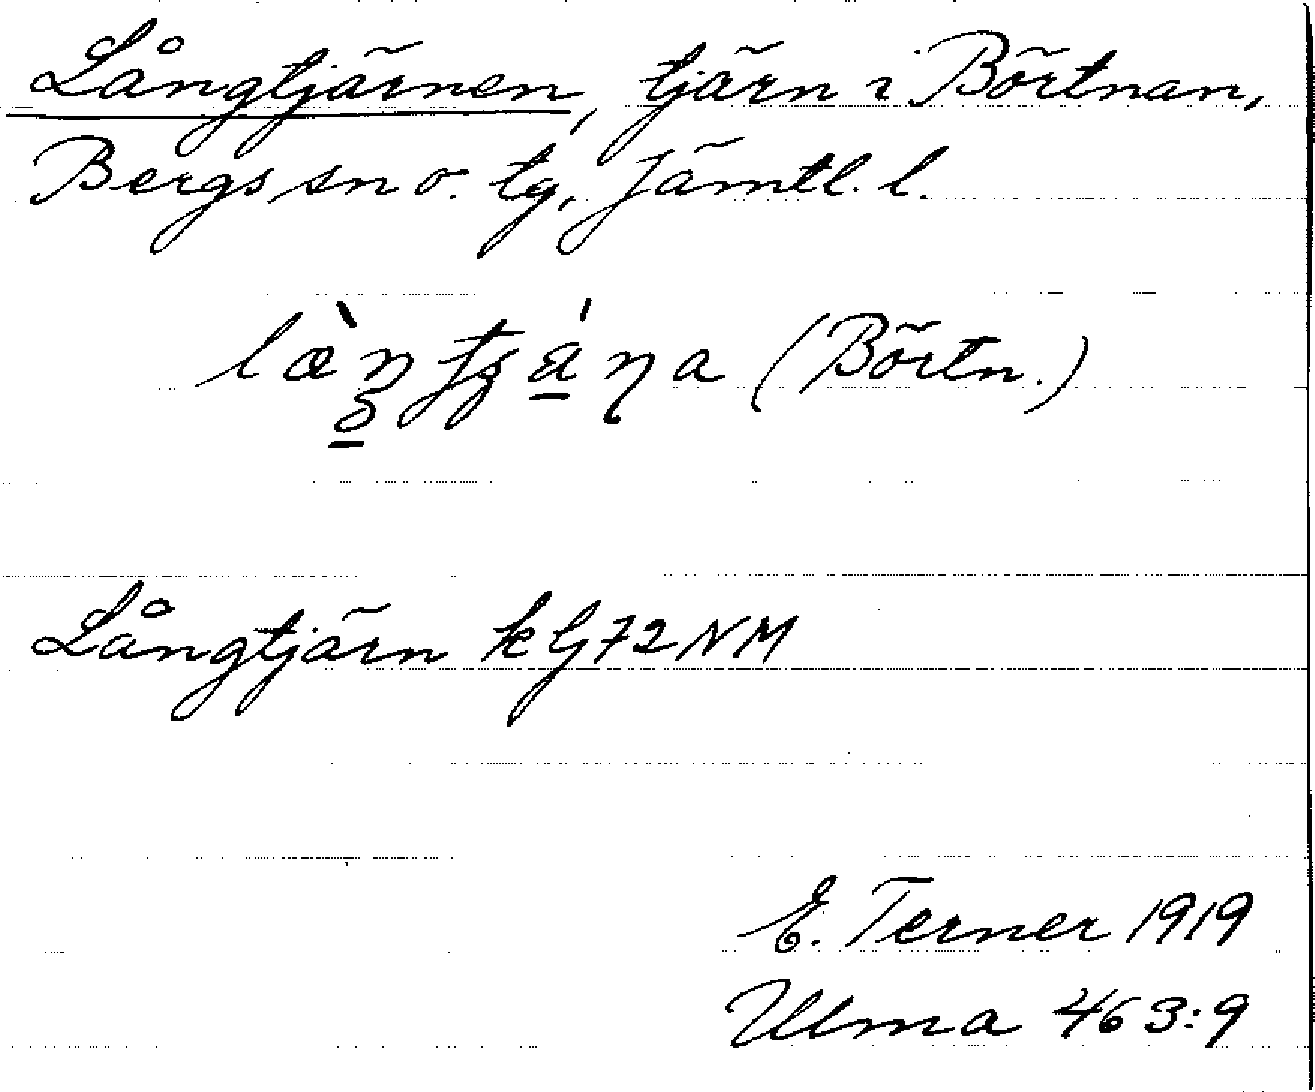 Långtjärnen, tjärn i Börtnan,
Bergs sn o. tg, Jämtl. l.
(Börtn.)
Långtjärn k G72NM
E. Terner 1919
Ulma 463:9